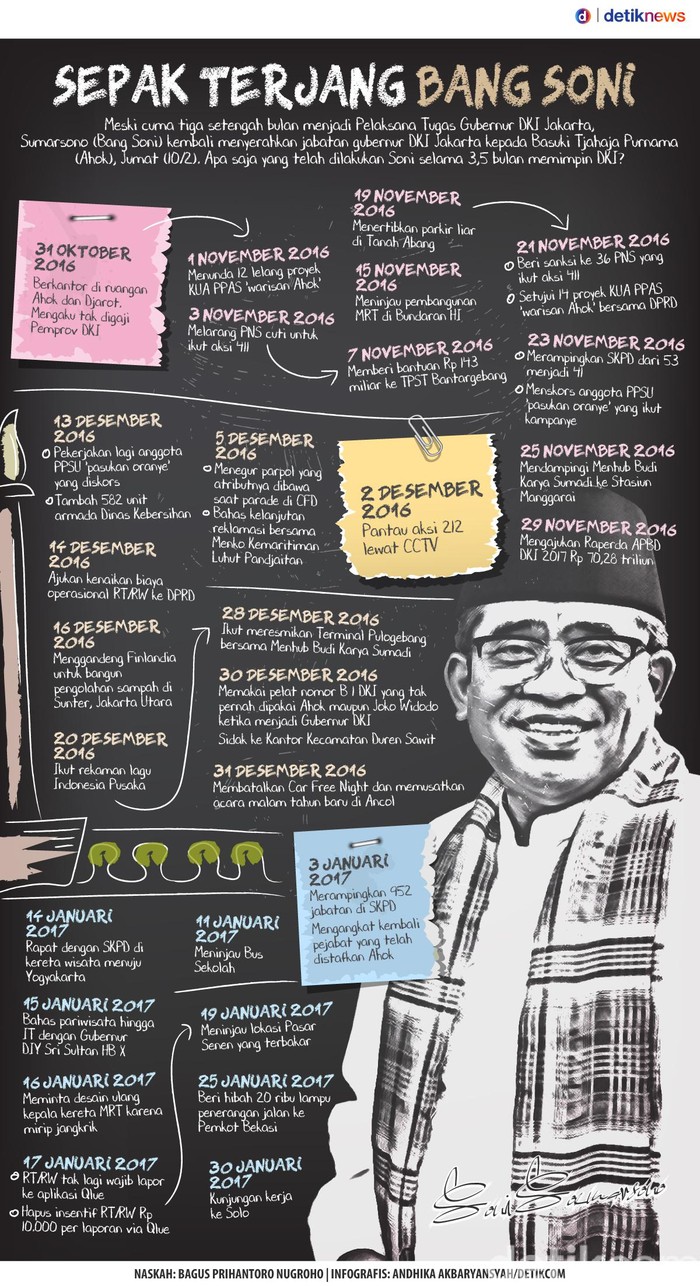 d | detiknews
SEPAK TERJANG BANG SONI
Meski cuma tiga setengah bulan menjadi Pelaksana Tugas Gubernur DKI Jakarta,
Sumarsono (Bang Soni) kembali menyerahkan jabatan gubernur DKI Jakarta kepada Basuki Tjahaja Purnama
(Ahok), Jumat (10/2). Apa saja yang telah dilakukan Soni selama 3,5 bulan memimpin DKI?
31 OKTOBER
2016
Berkantor di ruangan
Ahok dan Djarot.
Mengaku tak digaji
Pemprov DKI
1 NOVEMBER 2016
Menunda 12 lelang proyek
KUA PPAS 'warisan Ahok'
3 NOVEMBER 2016
Melarang PNS cuti untuk
ikut aksi 411
7 NOVEMBER 2016
Memberi bantuan Rp 143
miliar ke TPST Bantargebang
15 NOVEMBER
2016
Meninjau pembangunan
MRT di Bundaran HI
19 NOVEMBER
2016
Menertibkan parkir liar
di Tanah Abang
21 NOVEMBER 2016
Beri sanksi ke 36 PNS yang
ikut aksi 411
Setujui 14 proyek KUA PPAS
'warisan Ahok' bersama DPRD
23 NOVEMBER 2016
Merampingkan SKPD dari 53
menjadi 41
Menskors anggota PPSU
'pasukan oranye' yang ikut
kampanye
25 NOVEMBER 2016
Mendampingi Menhub Budi
Karya Sumadi ke Stasiun
Manggarai
29 NOVEMBER 2016
Mengajukan Raperda APBD
DKI 2017 Rp 70,28 triliun
2 DESEMBER
2016
Pantau aksi 212
lewat CCTV
5 DESEMBER
2016
Menegur parpol yang
atributnya dibawa
saat parade di CFD
Bahas kelanjutan
reklamasi bersama
Menko Kemaritiman
Luhut Pandjaitan
13 DESEMBER
2016
Pekerjakan lagi anggota
PPSU 'pasukan oranye'
yang diskors
Tambah 582 unit
armada Dinas Kebersihan
14 DESEMBER
2016
Ajukan kenaikan biaya
operasional RT/RW ke DPRD
16 DESEMBER
2016
Menggandeng Finlandia
untuk bangun
pengolahan sampah di
Sunter, Jakarta Utara
20 DESEMBER
2016
Ikut rekaman lagu
Indonesia Pusaka
28 DESEMBER 2016
Ikut meresmikan Terminal Pulogebang
bersama Menhub Budi Karya Sumadi
30 DESEMBER 2016
Memakai pelat nomor B 1 DKI yang tak
pernah dipakai Ahok maupun Joko Widodo
ketika menjadi Gubernur DKI
Sidak ke Kantor Kecamatan Duren Sawit
31 DESEMBER 2016
Membatalkan Car Free Night dan memusatkan
acara malam tahun baru di Ancol
3 JANUARI
2017
Merampingkan 952
jabatan di SKPD
Mengangkat kembali
pejabat yang telah
distafkan Ahok
11 JANUARI
2017
Meninjau Bus
Sekolah
14 JANUARI
2017
Rapat dengan SKPD di
kereta wisata menuju
Yogyakarta
15 JANUARI 2017
Bahas pariwisata hingga
IT dengan Gubernur
DIY Sri Sultan HB X
16 JANUARI 2017
Meminta desain ulang
kepala kereta MRT karena
mirip jangkrik
17 JANUARI 2017
RT/RW tak lagi wajib lapor
ke aplikasi Qlue
Hapus insentif RT/RW Rp
10.000 per laporan via Qlue
19 JANUARI 2017
Meninjau lokasi Pasar
Senen yang terbakar
25 JANUARI 2017
Beri hibah 20 ribu lampu
penerangan jalan ke
Pemkot Bekasi
30 JANUARI
2017
Kunjungan kerja
ke Solo
detikcom
NASKAH: BAGUS PRIHANTORO NUGROHO | INFOGRAFIS: ANDHIKA AKBARYANSYAH/DETIKCOM